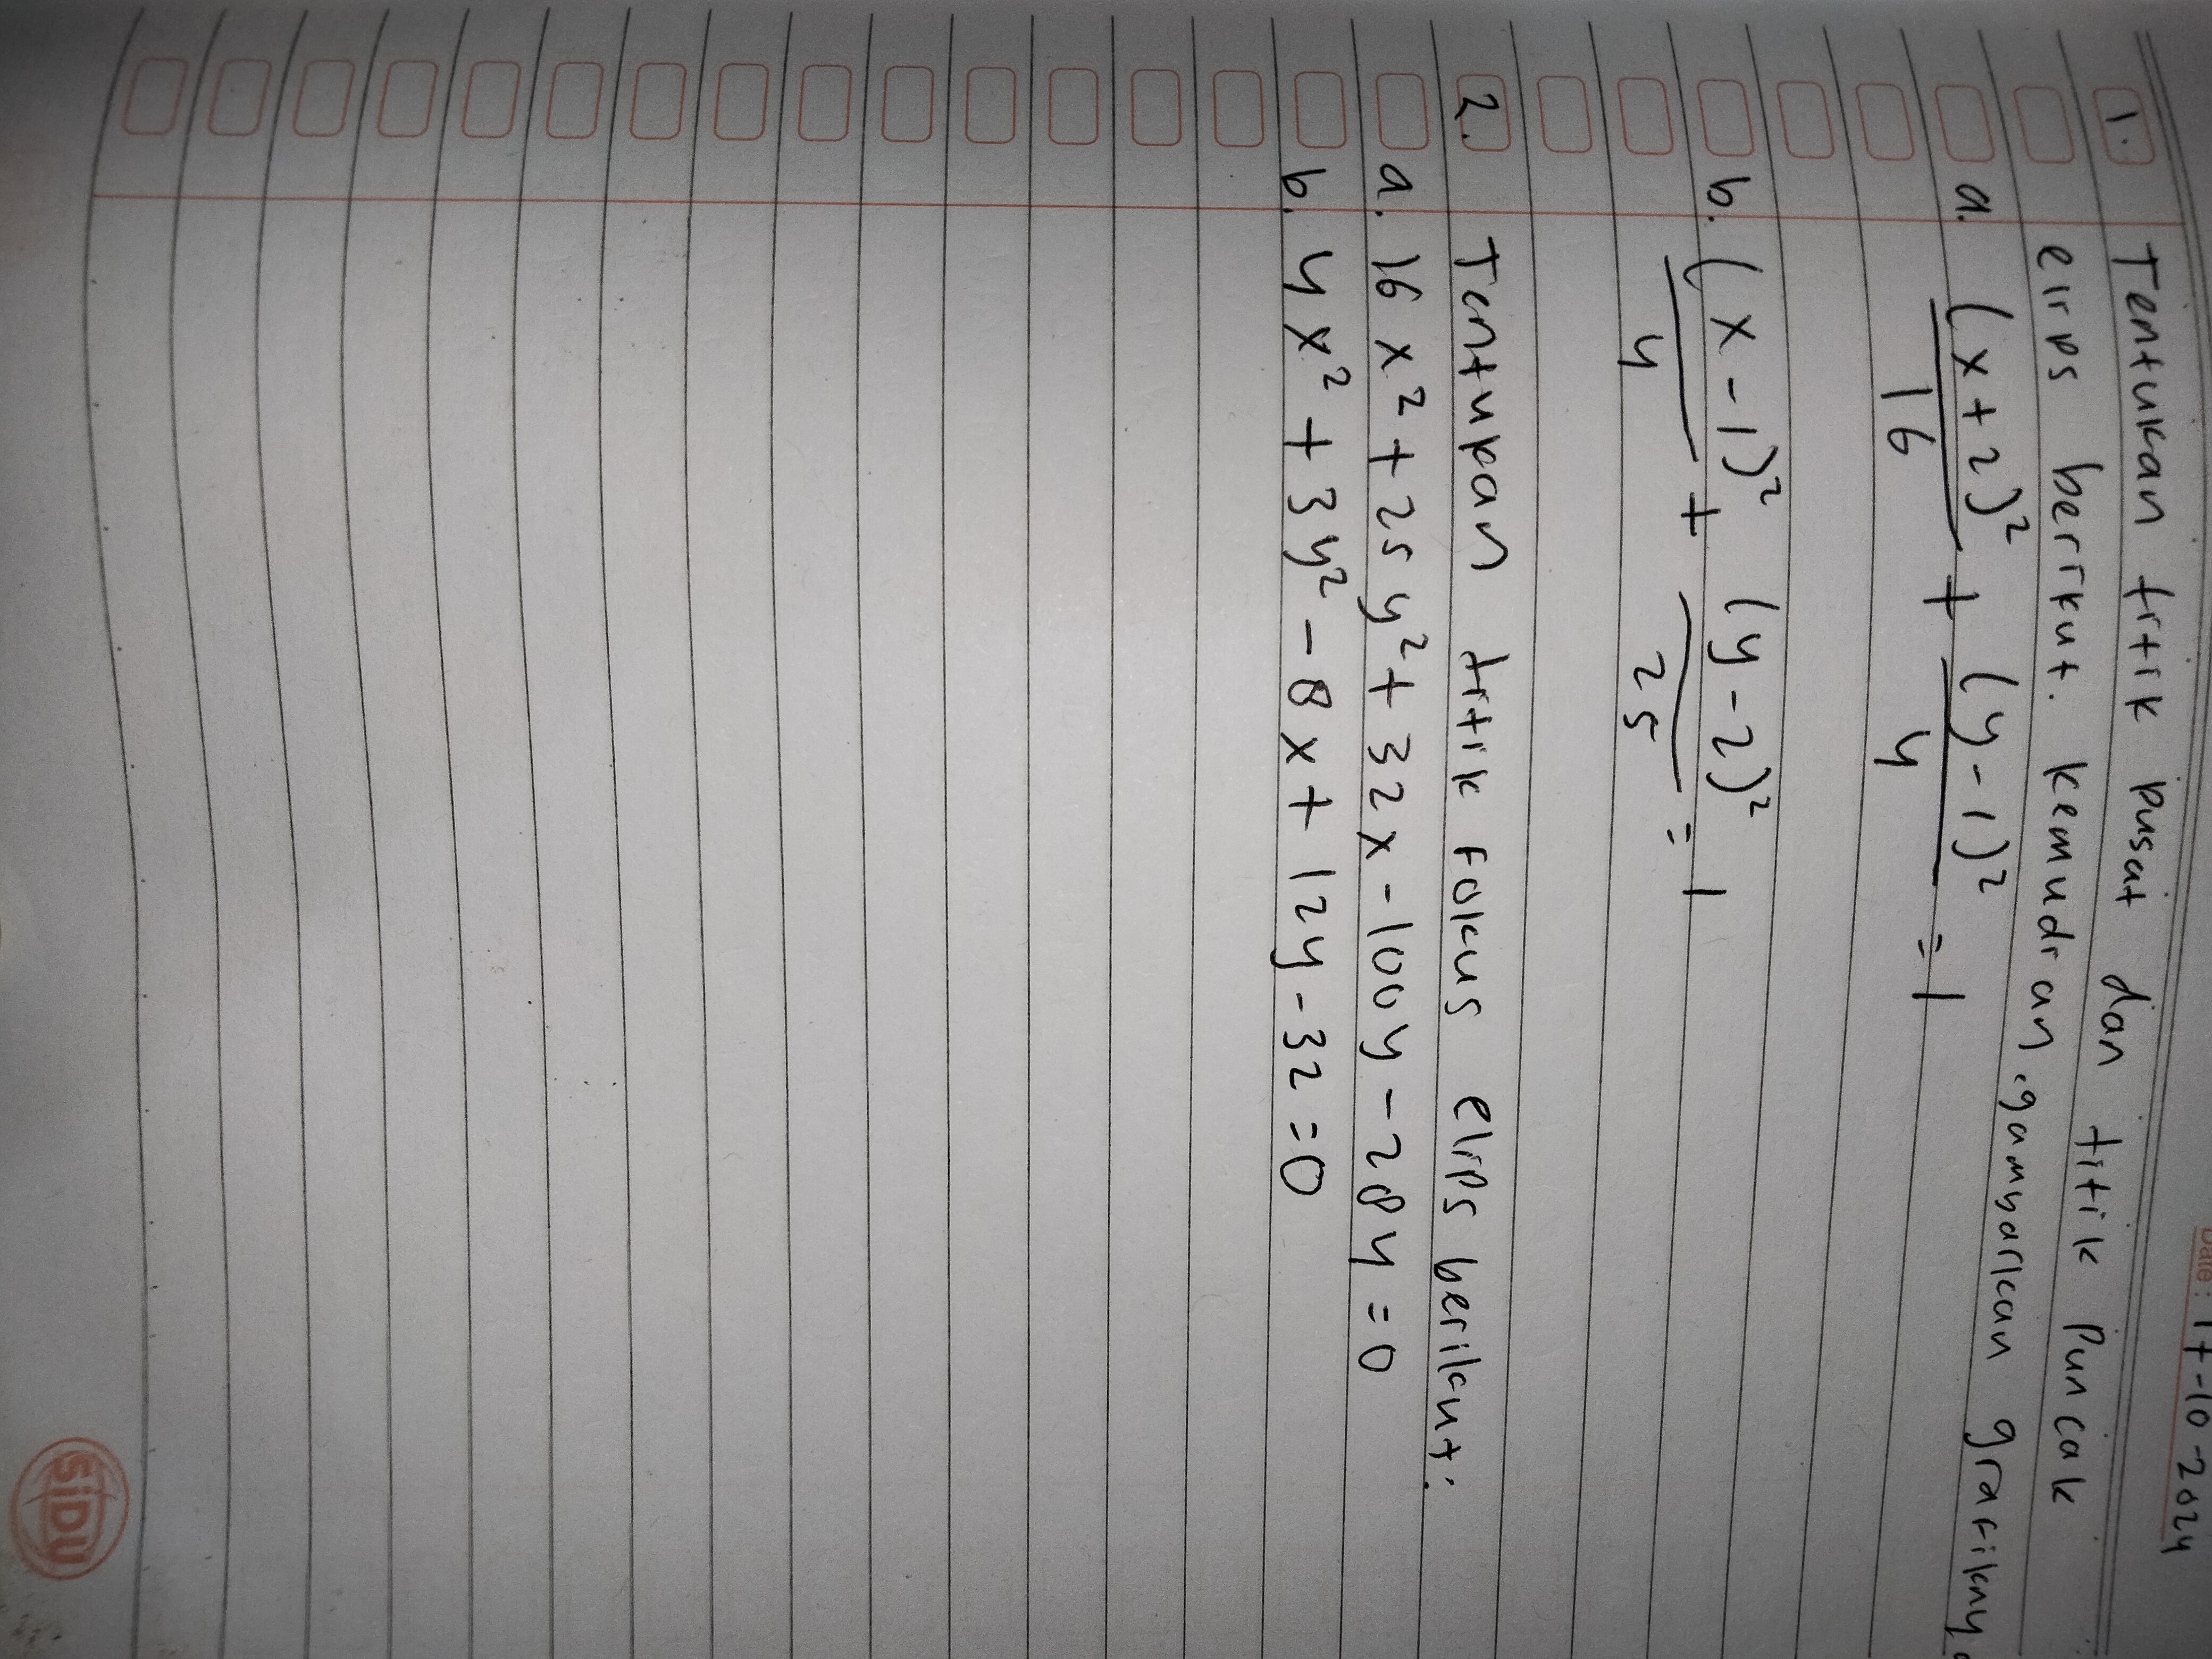 Date : 17-10-2024
1. Tentukan titik pusat dan titik puncak
elips berikut. kemudian, gambarkan grafiknya
a. (x+2)² + (y-1)² = 1
16 4
b. (x-1)² + (y-2)² = 1
4 25
2. Tentukan titik fokus elips berikut:
a. 16x² + 25y² + 32x - 100y - 284 = 0
b. 4x² + 3y² - 8x + 12y - 32 = 0
SiDU